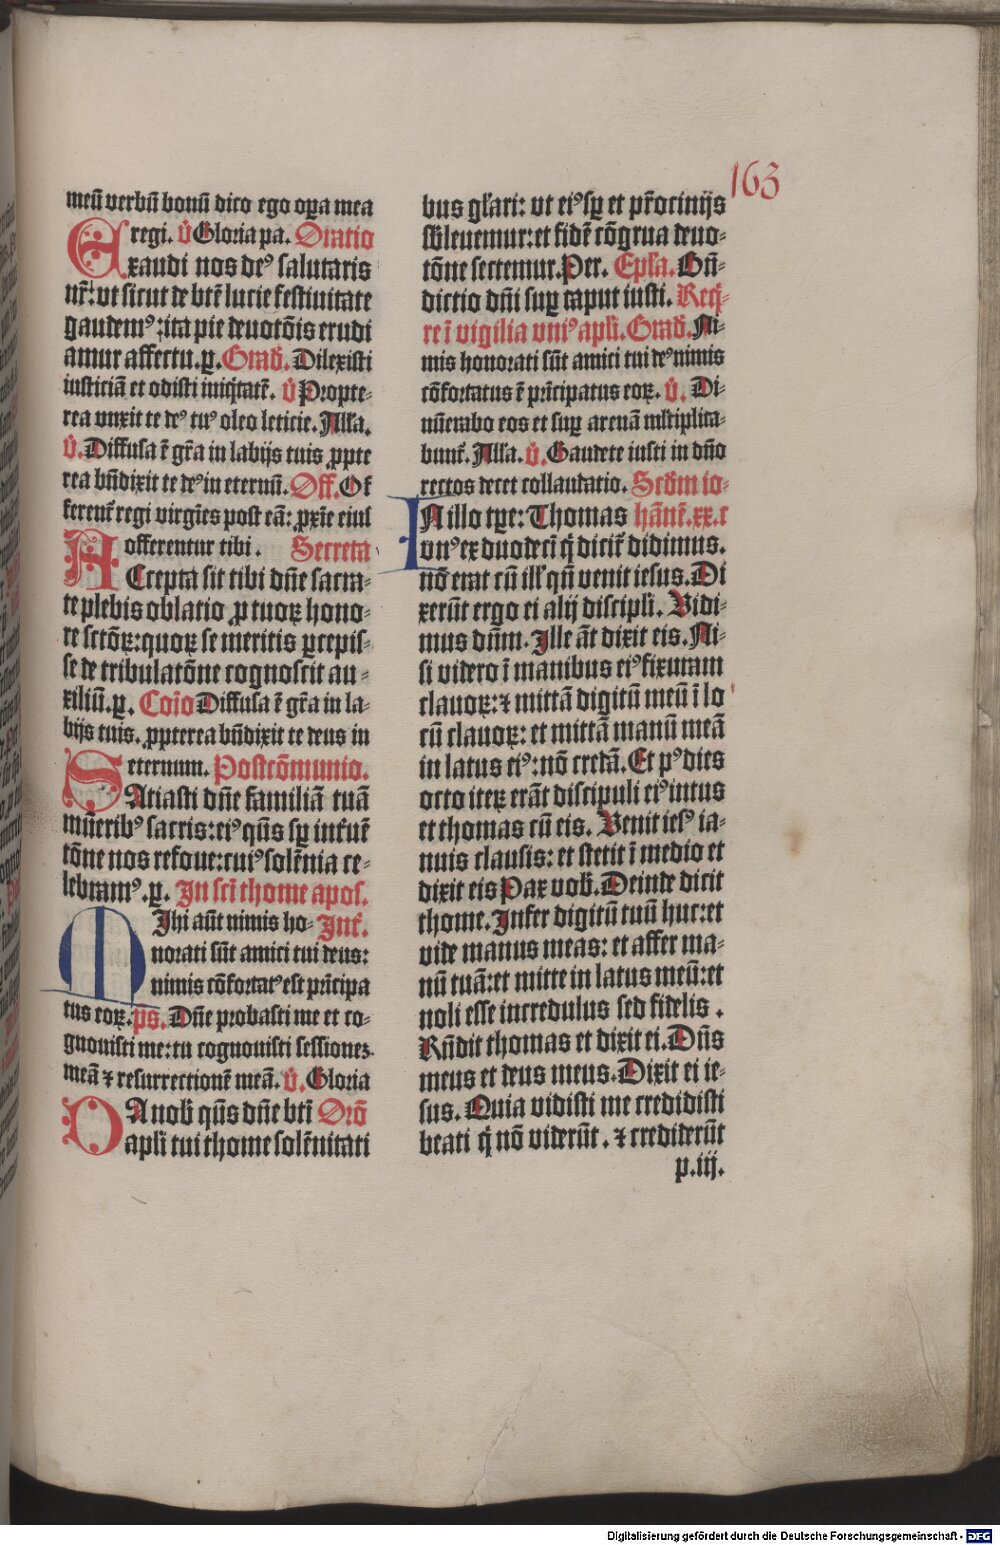 163
meū verbū bonū dico ego oꝑa mea
regi. v̄ Gloria pa. Oratio
Exaudi nos deꝰ salutaris
nr̄: vt sicut de btē lucie festiuitate
gaudemꝰ: ita pie deuotōis erudi
amur affectu. ꝑ. Grad̄. Dilexisti
iusticiā et odisti iniq̇tatē. v̄ Propte-
rea vnxit te deꝰ tuꝰ oleo leticie. Alla.
v̄. Diffusa ē gr̄a in labijs tuis ꝓpte
rea bn̄dixit te deꝰ in eternū. Off. Of
ferent̄ regi virgīes post eā: ꝓxīe eius
offerentur tibi. Secreta
Accepta sit tibi dn̄e sacra-
te plebis oblatio ꝓ tuoꝝ hono-
re sctōꝝ: quoꝝ se meritis ꝑcepis-
se de tribulatōne cognoscit au-
xiliū. ꝑ. Coīo Diffusa ē gr̄a in la-
bijs tuis. ꝓpterea bn̄dixit te deus in
eternum. Postcōmunio.
Satiasti dn̄e familiā tuā
mūeribꝰ sacris: eiꝰ qūs sꝑ int̄uē
tōne nos refoue: cuiꝰ solēnia ce-
lebramꝰ. ꝑ. In scī thome apos.
Mihi aūt nimis ho- Int̄.
norati sūt amici tui deus:
nimis cōfortatꝰ est prīcipa
tus eoꝝ. ps. Dn̄e probasti me et co-
gnouisti me: tu cognouisti sessionez
meā ⁊ resurrectionē meā. v̄. Gloria
Da nob̄ qūs dn̄e btī Orō
apl̄i tui thome solēnitati
bus gl̄ari: vt eiꝰ sꝑ et pr̄ocinijs
sb̄leuemur: et fidē cōgrua deuo-
tōne sectemur. Per. Epl̄a. Bn̄-
dictio dn̄i suꝑ caput iusti. Req̄-
re ī vigilia vniꝰ apl̄i. Grad̄. Ni-
mis honorati sūt amici tui deꝰ nimis
cōfortatus ē prīcipatus eoꝝ. v̄. Di-
nūerabo eos et suꝑ arenā ml̄tiplica-
bunt̄. Alla. v̄. Gaudete iusti in dn̄o
rectos decet collaudatio. Scd̄m io-
In illo tꝑe: Thomas hānē. xx. c
vnꝰ ex duodecī q̄ dicit̄ didimus.
nō erat cū ill̄ qn̄ venit iesus. Di
xerūt ergo ei alij discipl̄i. Vidi-
mus dn̄m. Ille āt dixit eis. Ni-
si videro ī manibus eiꝰ fixuram
clauoꝝ: ⁊ mittā digitū meū ī lo
cū clauoꝝ: et mittā manū meā
in latus eiꝰ: nō credā. Et pꝰ dies
octo iteꝝ erāt discipuli eiꝰ intus
et thomas cū eis. Venit iesꝰ ia-
nuis clausis: et stetit ī medio et
dixit eis Pax vob̄. Deinde dicit
thome. Infer digitū tuū huc: et
vide manus meas: et affer ma-
nū tuā: et mitte in latus meū: et
noli esse incredulus sed fidelis.
Rn̄dit thomas et dixit ei. Dn̄s
meus et deus meus. Dixit ei ie-
sus. Quia vidisti me credidisti
beati q̄ nō viderūt. ⁊ crediderūt
p. iij.
Digitalisierung gefördert durch die Deutsche Forschungsgemeinschaft - DFG